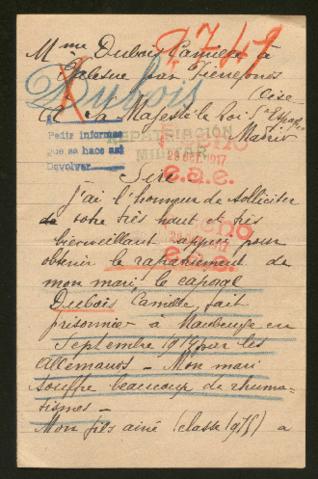 Mme Dubois Camille à
par
Oise
A sa Majesté le Roi d'Espagne
Madrid
Dubois
Pedir informes
que se hace así
Devolver
REPATRIACIÓN
MILITAR
23 OCT. 1917
e.a.e.
Sire
j'ai l'honneur de solliciter
de votre très haut et très
bienveillant appui pour
obtenir le rapatriement de
e.a.e.
mon mari, le caporal
Dubois Camille, fait
prisonnier à Maubeuge en
Septembre 1914 par les
Allemands - Mon mari
souffre beaucoup de rhuma-
tismes -
Mon fils aîné (classe 1915) a